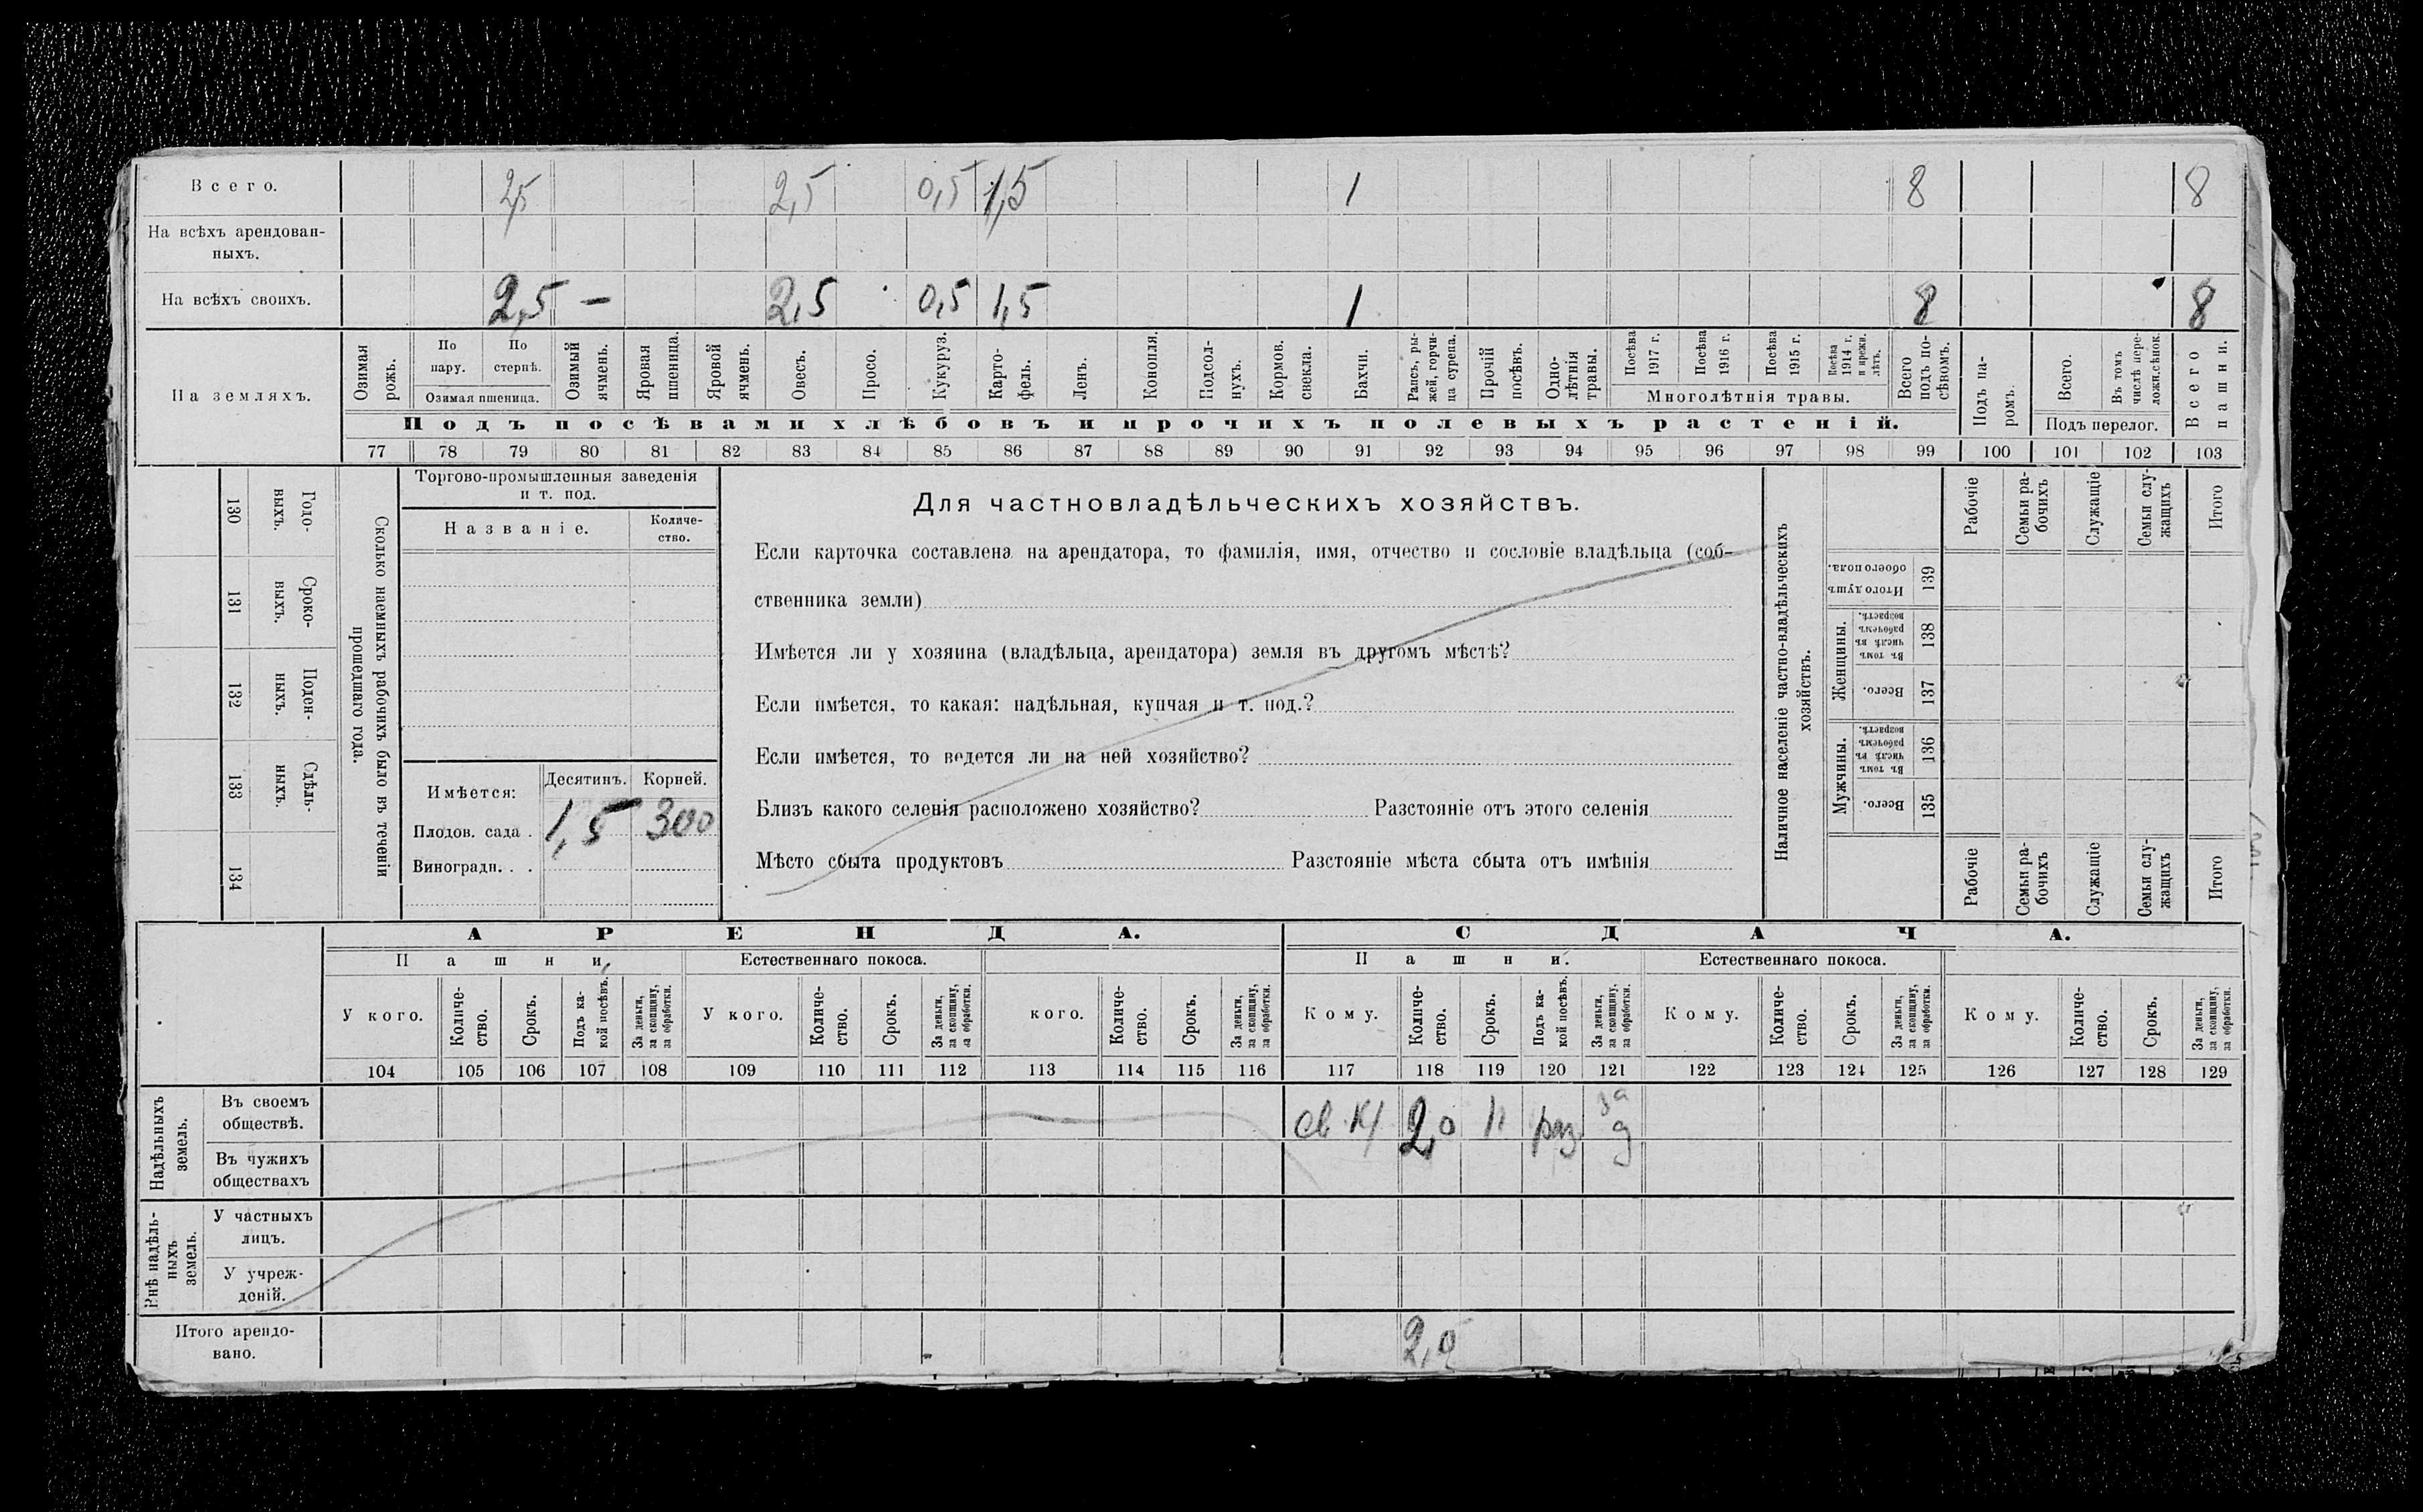 Всего. 2,5 2,5 0,5 1,5 1 8 8
На всѣхъ арендован-
ныхъ.
На всѣхъ своихъ. 2,5 — 2,5 0,5 1,5 1 8 8
На земляхъ.
Озимая рожь.
По пару.
По стернѣ.
Озимая пшеница.
Озимый ячмень.
Яровая пшеница.
Яровой ячмень.
Овесъ.
Просо.
Кукуруз.
Карто-
фель.
Ленъ.
Конопля.
Подсол-
нухъ.
Кормов. свекла.
Бахчи.
Рапсъ, ры-
жей, горчи-
ца сурепа.
Прочій посѣвъ.
Одно-
лѣтнія травы.
Посѣва 1917 г.
Посѣва 1916 г.
Посѣва 1915 г.
Посѣва 1914 г. и прежн. лѣтъ.
Многолѣтнія травы.
Всего подъ по-
сѣвомъ.
Подъ па-
ромъ.
Всего.
Въ томъ числѣ пере-
ложн.сѣнок.
Подъ перелог.
Всего пашни.
Подъ посѣвами хлѣбовъ и прочихъ полевыхъ растеній.
77 78 79 80 81 82 83 84 85 86 87 88 89 90 91 92 93 94 95 96 97 98 99 100 101 102 103
130 Годо-
выхъ.
131 Сроко-
выхъ.
132 Поден-
ныхъ.
133 Сдѣль-
ныхъ.
134
Сколько наемныхъ рабочихъ было въ теченіи
прошедшаго года.
Торгово-промышленныя заведенія
и т. под.
Названіе.
Количе-
ство.
Имѣется:
Десятинъ. Корней.
Плодов. сада . 1,5 300
Виноградн. . .
Для частновладѣльческихъ хозяйствъ.
Если карточка составлена на арендатора, то фамилія, имя, отчество и сословіе владѣльца (соб-
ственника земли)
Имѣется ли у хозяина (владѣльца, арендатора) земля въ другомъ мѣстѣ?
Если имѣется, то какая: надѣльная, купчая и т. под.?
Если имѣется, то ведется ли на ней хозяйство?
Близъ какого селенія расположено хозяйство? Разстояніе отъ этого селенія
Мѣсто сбыта продуктовъ Разстояніе мѣста сбыта отъ имѣнія
Наличное населеніе частно-владѣльческихъ
хозяйствъ.
Рабочіе
Семьи ра-
бочихъ
Служащіе
Семьи слу-
жащихъ
Итого
Итого душъ обоего пола. 139
Женщины.
Въ томъ числѣ въ рабочемъ возрастѣ. 138
Всего. 137
Мужчины.
Въ томъ числѣ въ рабочемъ возрастѣ. 136
Всего. 135
Рабочіе
Семьи ра-
бочихъ
Служащіе
Семьи слу-
жащихъ
Итого
АРЕНДА. СДАЧА.
Пашни. Естественнаго покоса. Пашни. Естественнаго покоса.
У кого.
Количе-
ство.
Срокъ.
Подъ ка-
кой посѣвъ.
За деньги,
за скопщину,
за обработки.
У кого.
Количе-
ство.
Срокъ.
За деньги,
за скопщину,
за обработки.
кого.
Количе-
ство.
Срокъ.
За деньги,
за скопщину,
за обработки.
Кому.
Количе-
ство.
Срокъ.
Подъ ка-
кой посѣвъ.
За деньги,
за скопщину,
за обработки.
Кому.
Количе-
ство.
Срокъ.
За деньги,
за скопщину,
за обработки.
Кому.
Количе-
ство.
Срокъ.
За деньги,
за скопщину,
за обработки.
104 105 106 107 108 109 110 111 112 113 114 115 116 117 118 119 120 121 122 123 124 125 126 127 128 129
Надѣльныхъ
земель.
Въ своемъ
обществѣ. 2,0 раз за д
Въ чужихъ
обществахъ
Внѣ надѣль-
ныхъ
земель.
У частныхъ
лицъ.
У учреж-
деній.
Итого арендо-
вано. 2,0